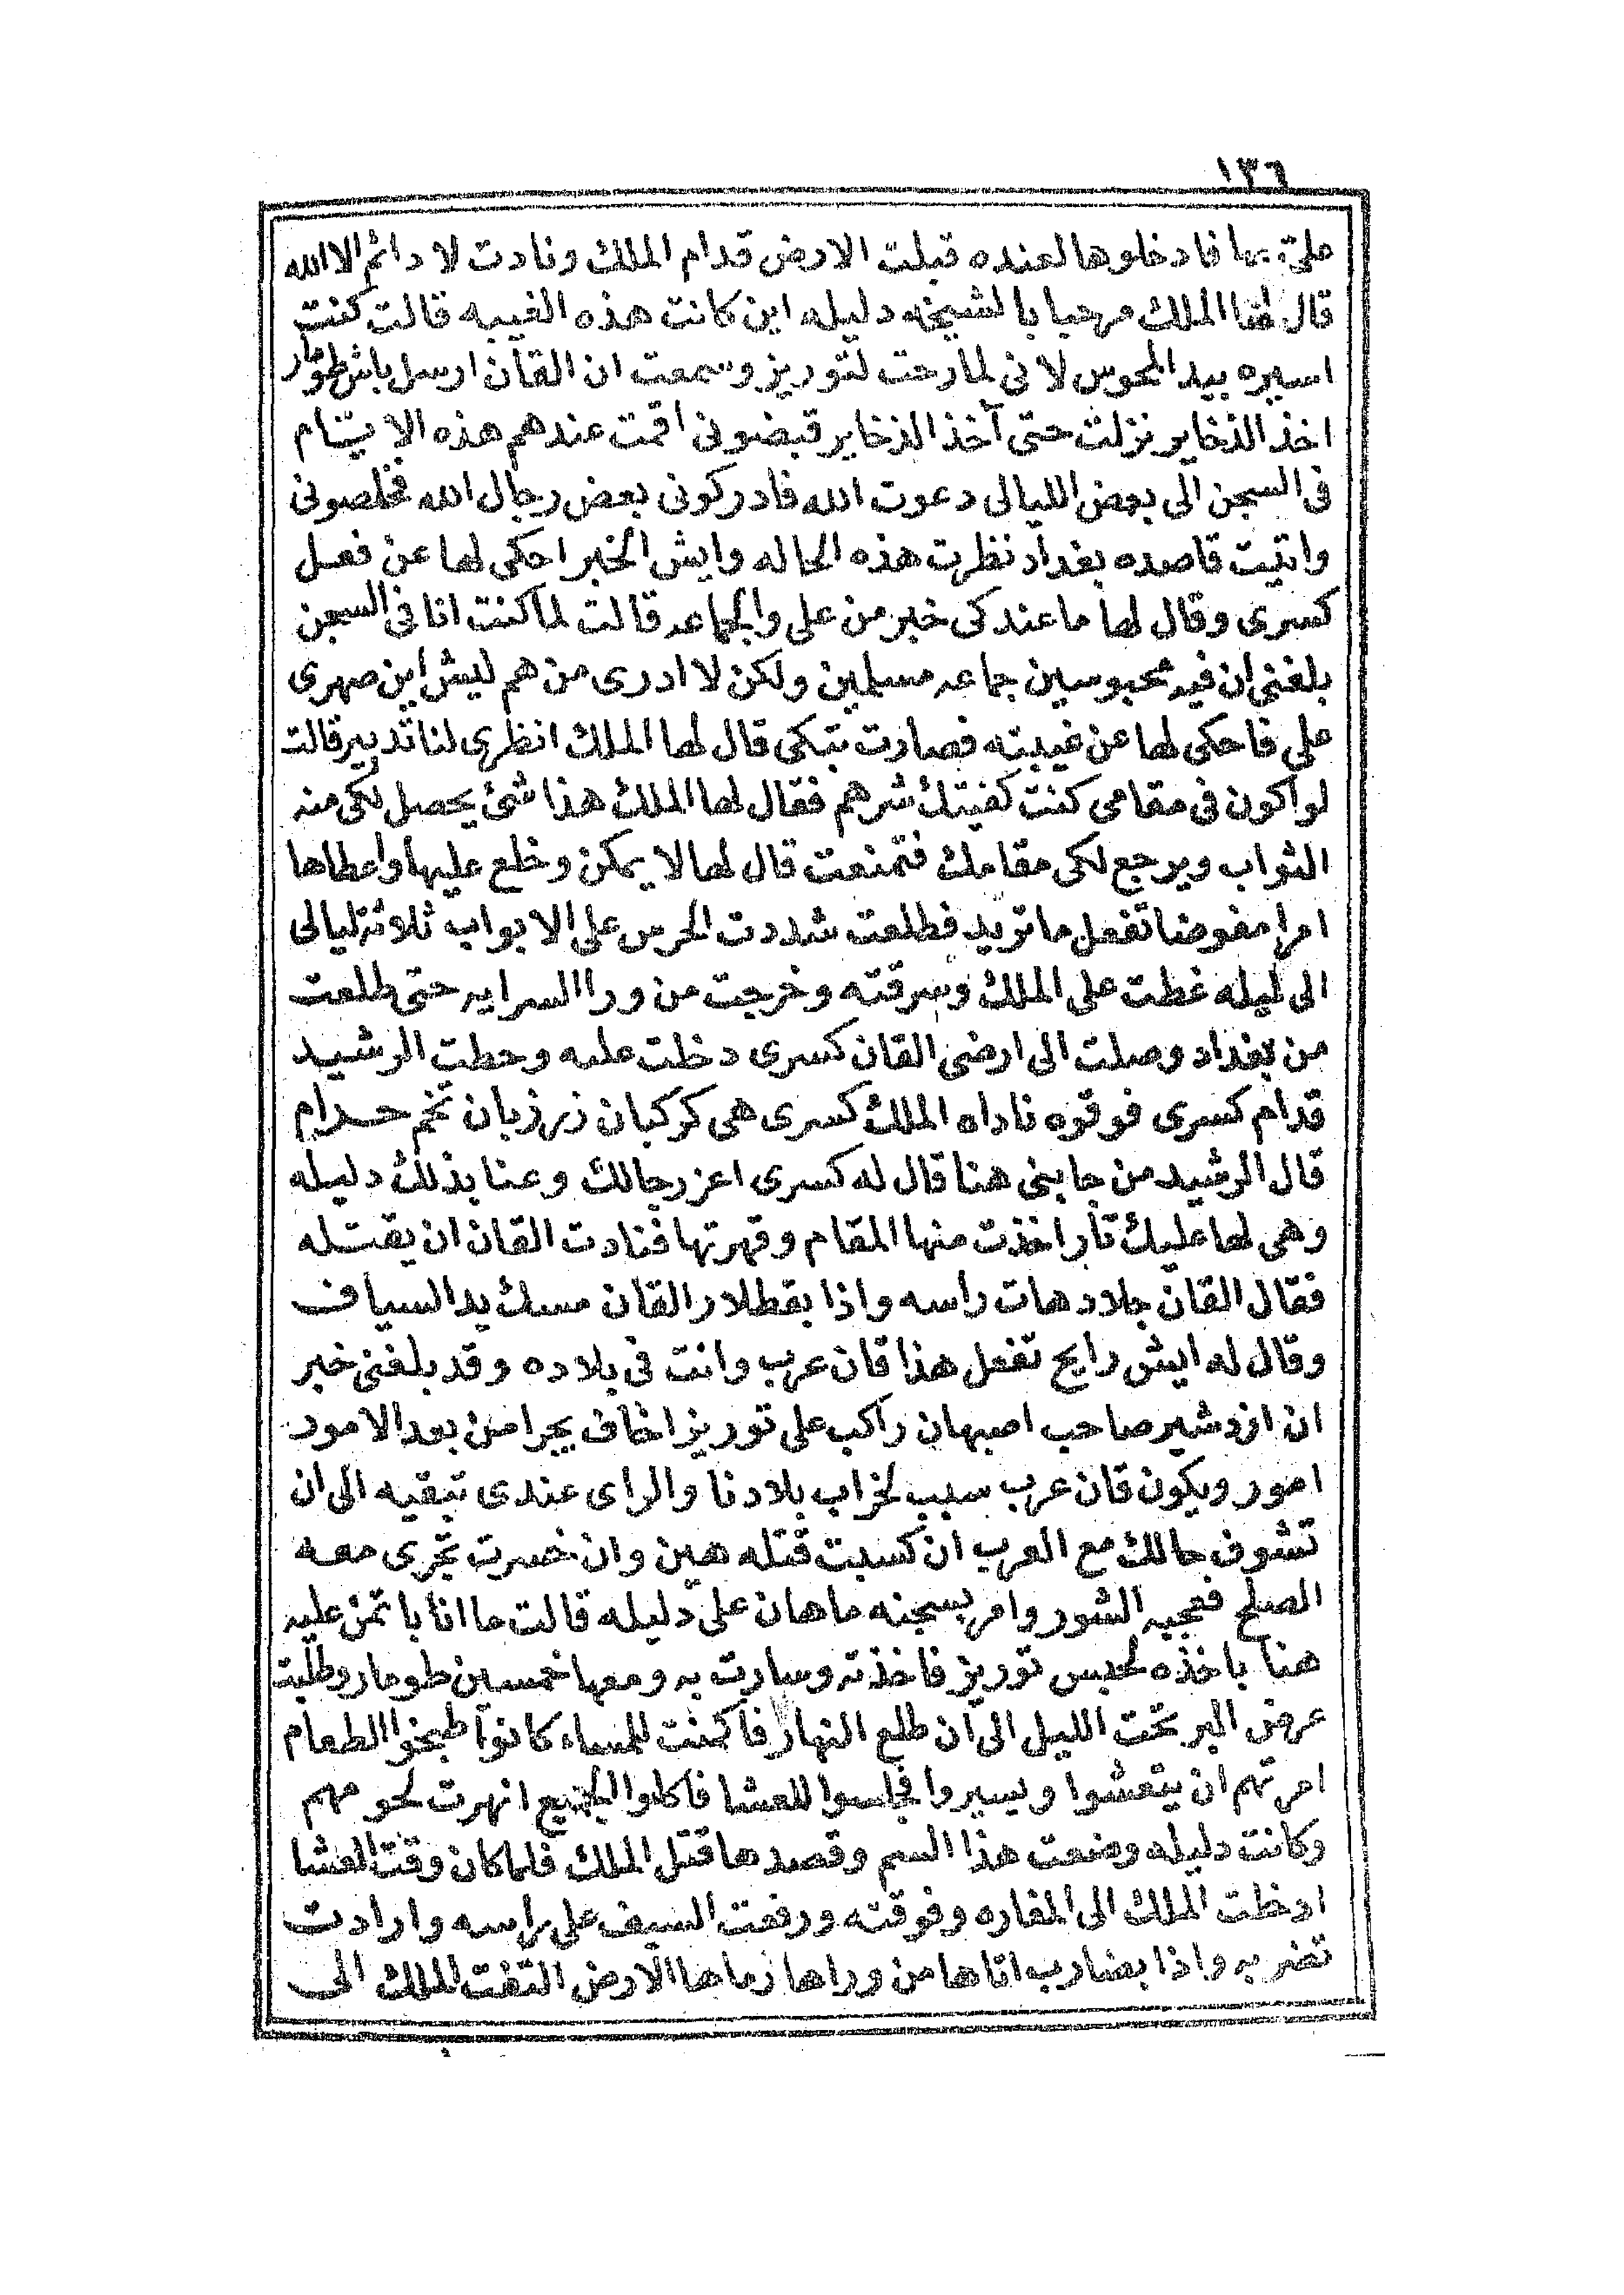 ١٣٦
علي بها فادخلوها لعنده قبلت الارض قدام الملك ونادت لا دائم الا الله
قال لها الملك مرحبا بالشيخه دليله اين كانت هذه الغيبه قالت كنت
اسيره بيد المجوس لاني لما رحت لتوريز وسمعت ان القان ارسل باش طومار
اخذ الذخاير نزلت حتى آخذ الذخاير قبضوني اقمت عندهم هذه الايام
في السجن الى بعض الليالى دعوت الله فادركونى بعض رجال الله فخلصونى
واتيت قاصده بغداد نظرت هذه الحاله وايش الخبر احكى لها عن فعل
كسرى وقال لها ما عندكى خبر من على والجماعه قالت لما كنت انا فى السجن
بلغنى ان فيه محبوسين جماعه مسلمين ولكن لا ادرى من هم ليش اين صهرى
على فاحكى لها عن غيبته فصارت تبكى قال لها الملك انظرى لنا تدبير قالت
لو اكون فى مقامى كنت كفيتك شرهم فقال لها الملك هذا شئ يحصل لكى منه
الثواب ويرجع لكى مقامك فتمنعت قال لها لا يمكن وخلع عليها واعطاها
امرا مفوضا تفعل ما تريد فطلعت شددت الحرس على الابواب ثلاثة ليالى
الى ليله غطت على الملك وسرقته وخرجت من ورا السرايه حتى طلعت
من بغداد وصلت الى ارضى القان كسرى دخلت عليه وحطت الرشيد
قدام كسرى فوقوه ناداه الملك كسرى هى كركبان زرزبان تخم حرام
قال الرشيد من جابنى هنا قال له كسرى اعز رجالك وعنا بذلك دليله
وهى لها عليك تار اخذت منها المقام وقهرتها فنادت القان ان يقتله
فقال القان جلاد هات راسه واذا بقطلار القان مسك يد السياف
وقال له ايش رايح تفعل هذا قان عرب وانت فى بلاده وقد بلغنى خبر
ان ازدشير صاحب اصبهان راكب على توريز اخاف يجرا من بعد الامور
امور ويكون قان عرب سبب لخراب بلادنا والراى عندى تبقيه الى ان
تشوف حالك مع العرب ان كسبت قتله هين وان خسرت تجرى معه
الصلح فعجبه الشور وامر بسجنه ما هان على دليله قالت ما انا باتمن عليه
هنا باخذه لحبس توريز فاخذته وسارت به ومعها خمسين طومار وطلبت
عرض البر تحت الليل الى ان طلع النهار فاكمنت للمساء كانوا طبخوا الطعام
امرتهم ان يتعشوا ويسيروا فجلسوا للعشا فاكلوا الجميع انهرت لحومهم
وكانت دليله وضعت هذا السم وقصدها قتل الملك فلما كان وقت العشا
ادخلت الملك الى المغاره وفوقته ورفعت السيف على راسه وارادت
تضربه واذا بضارب اتاها من وراها رماها الارض التفت للملك الى